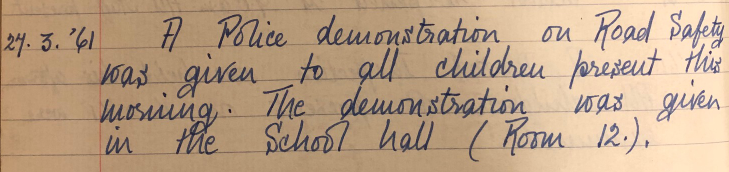 27. 3. '61 A Police demonstration on Road Safety
was given to all children present this
morning. The demonstration was given
in the School hall (Room 12.).